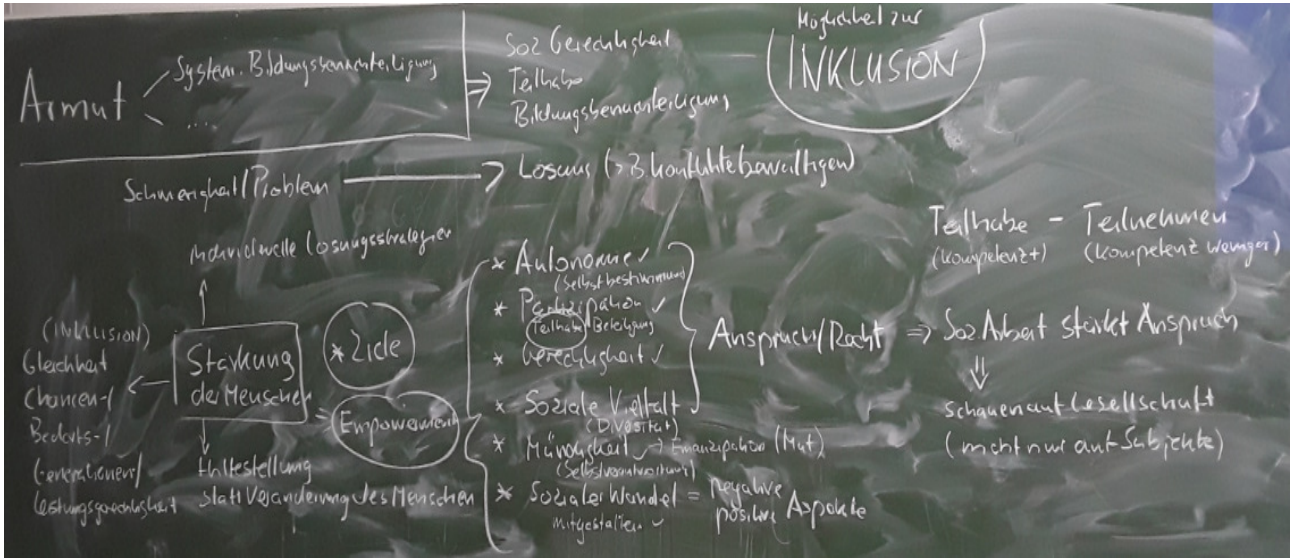 Armut
System. Bildungsbenachteiligung
....
Soz Gerechtigkeit
Teilhabe
Bildungsbenachteiligung
Möglichkeit zur
INKLUSION
Schwierigkeit/Problem
Lösung (z B. Konflikte bewältigen)
Individuelle Lösungsstrategien
(INKLUSION)
Gleichheit
Chancen-/
Bedarfs-/
Generationen/
Leistungsgerechtigkeit
Stärkung
der Menschen
Hilfestellung
statt Veränderung des Menschen
* Ziele
= Empowerment
* Autonomie ✓
(Selbstbestimmung)
* Partizipation ✓
Teilhabe/Beteiligung
* Gerechtigkeit ✓
* Soziale Vielfalt ✓
(Diversität)
* Mündigkeit ✓ → Emanzipation (Mut)
(Selbstverantwortung)
* Sozialer Wandel = negative
mitgestalten ✓
positive Aspekte
Anspruch/Recht ⇒ Soz Arbeit stärkt Anspruch
⇓
schauen auf Gesellschaft
(nicht nur auf Subjekte)
Teilhabe - Teilnehmen
(Kompetenz+) (Kompetenz weniger)